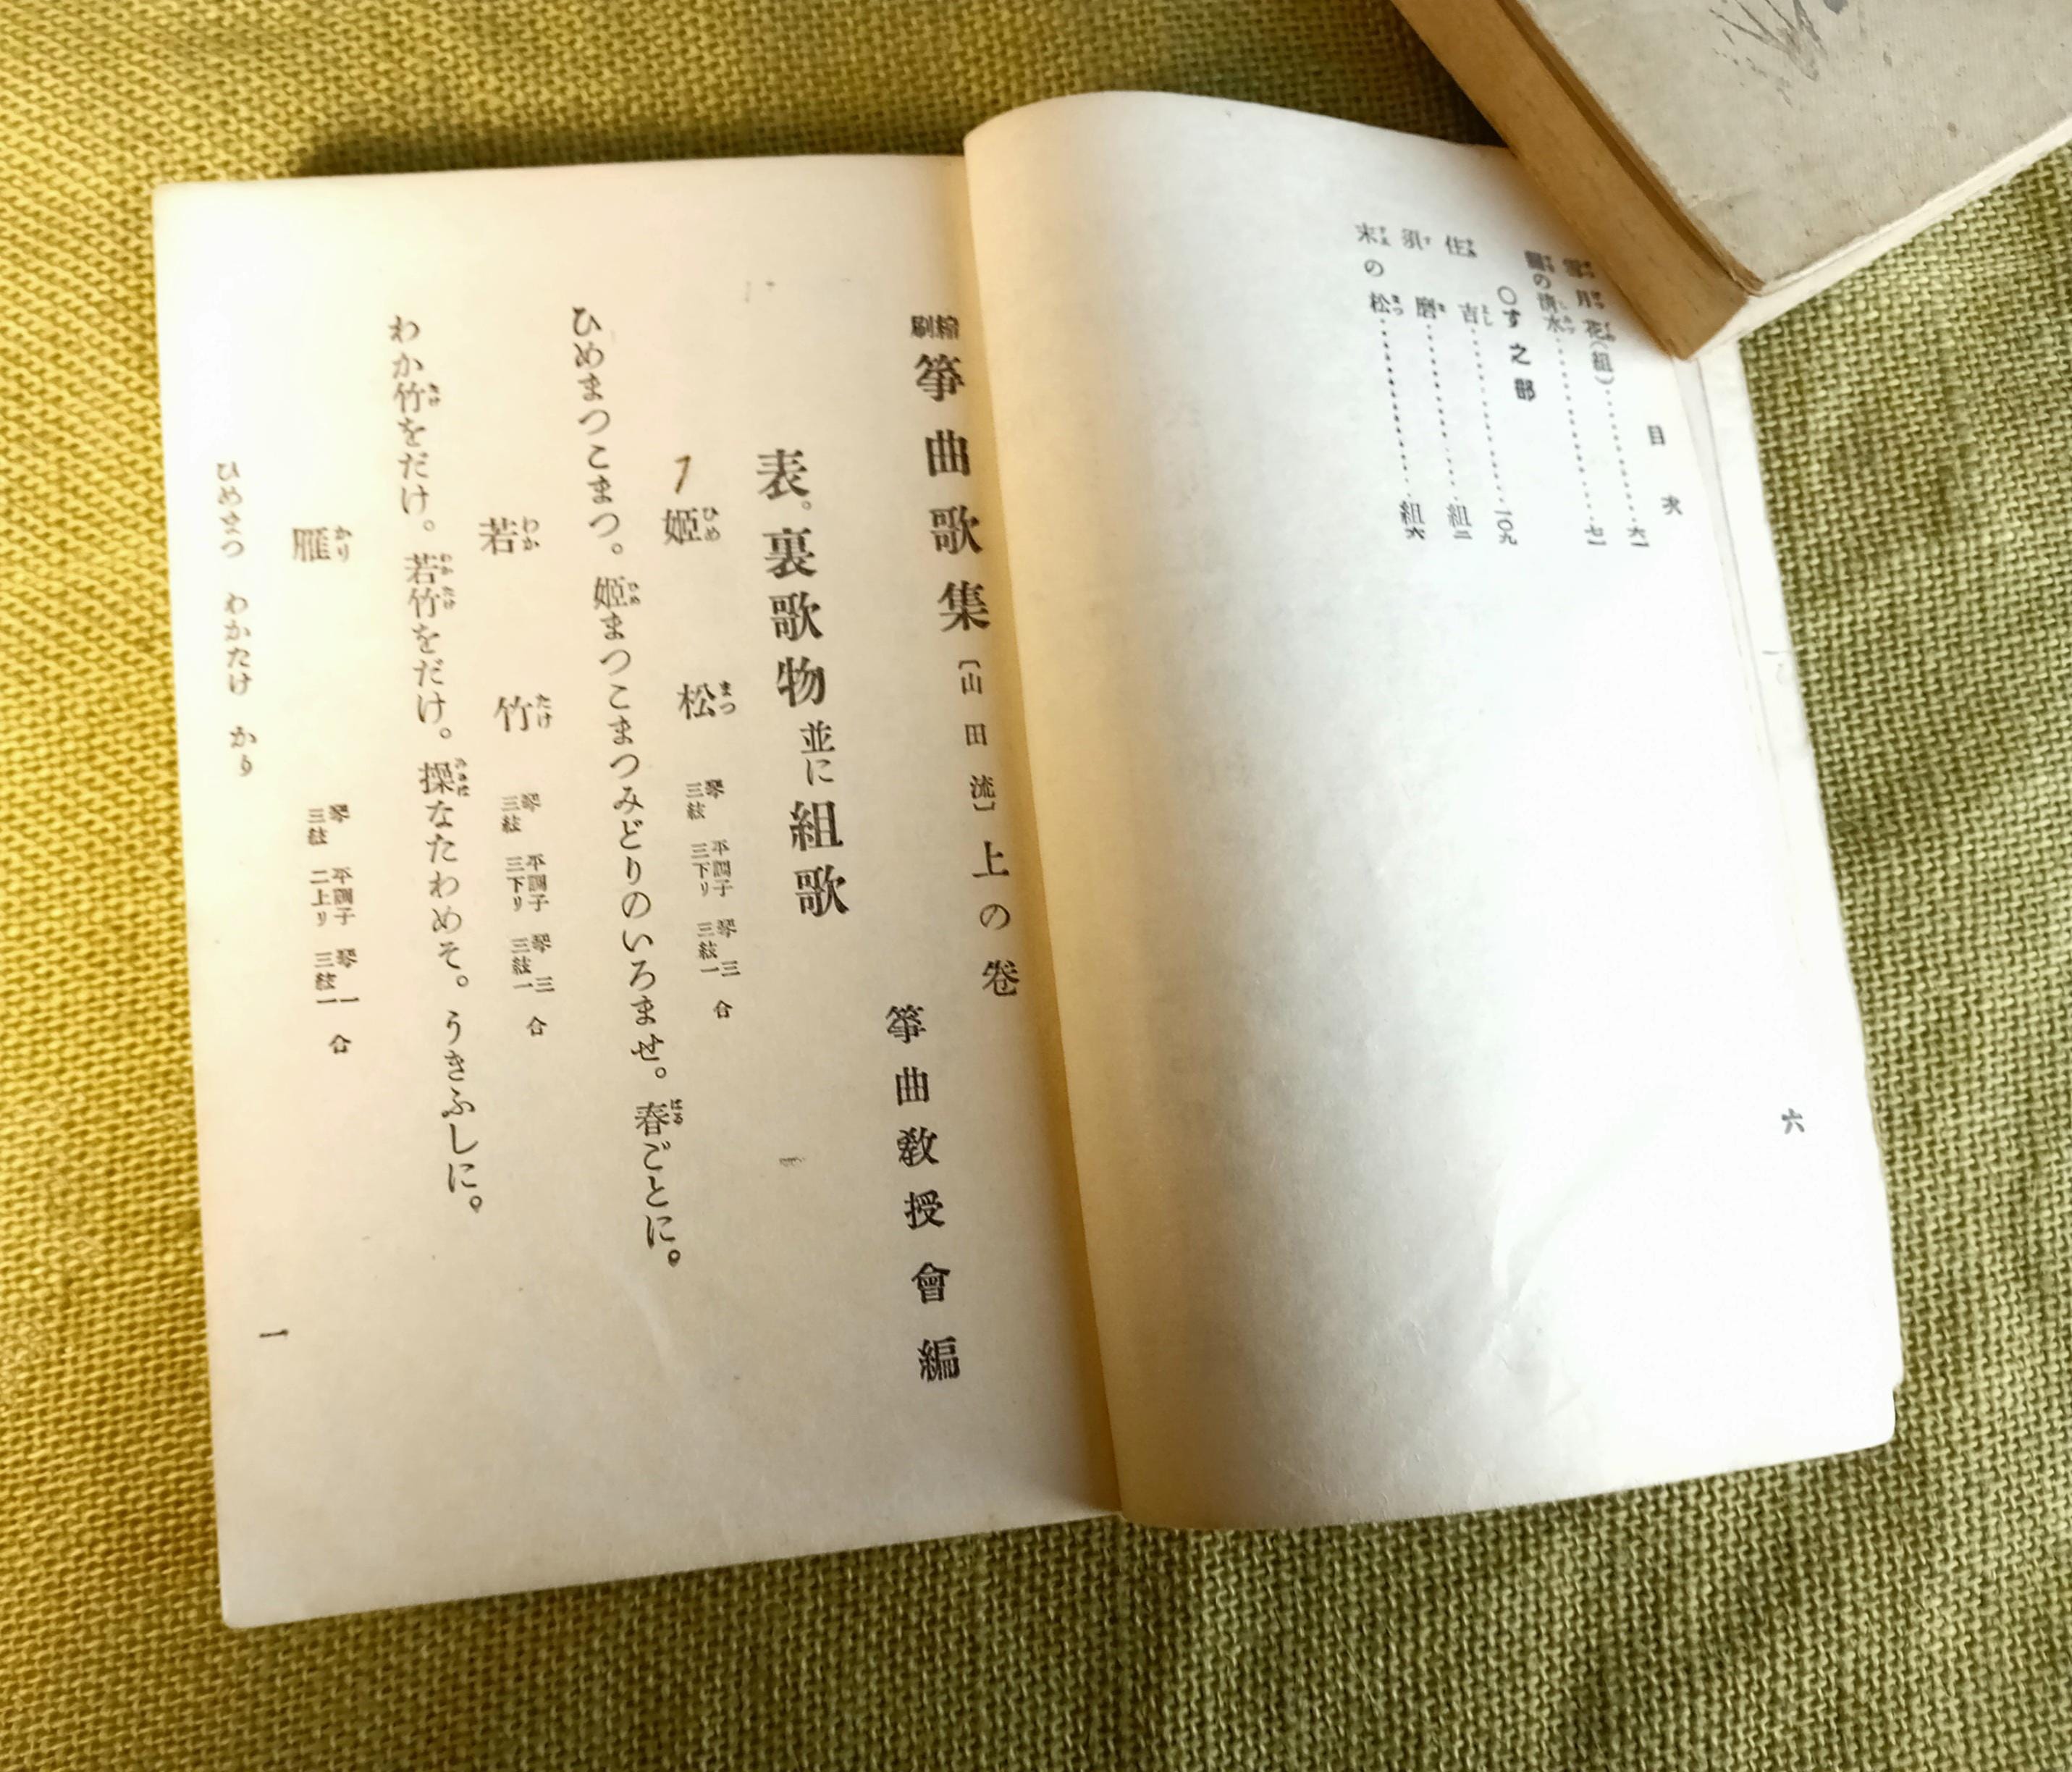 目次
六
雪月花(組)………六一
關の清水………七一
○す之部
住吉………一〇九
須磨………組二
末の松………組六
縮刷 箏曲歌集〔山田流〕上の卷
箏曲敎授會編
表。裏歌物並に組歌
1
姫松 琴 平調子 琴三 三絃 三下リ 三絃一 合
ひめまつこまつ。姫まつこまつみどりのいろませ。春ごとに。
若竹 琴 平調子 琴三 三絃 三下リ 三絃一 合
わか竹をだけ。若竹をだけ。操なたわめそ。うきふしに。
雁 琴 平調子 琴一 三絃 二上リ 三絃一 合
ひめまつ わかたけ かり
一